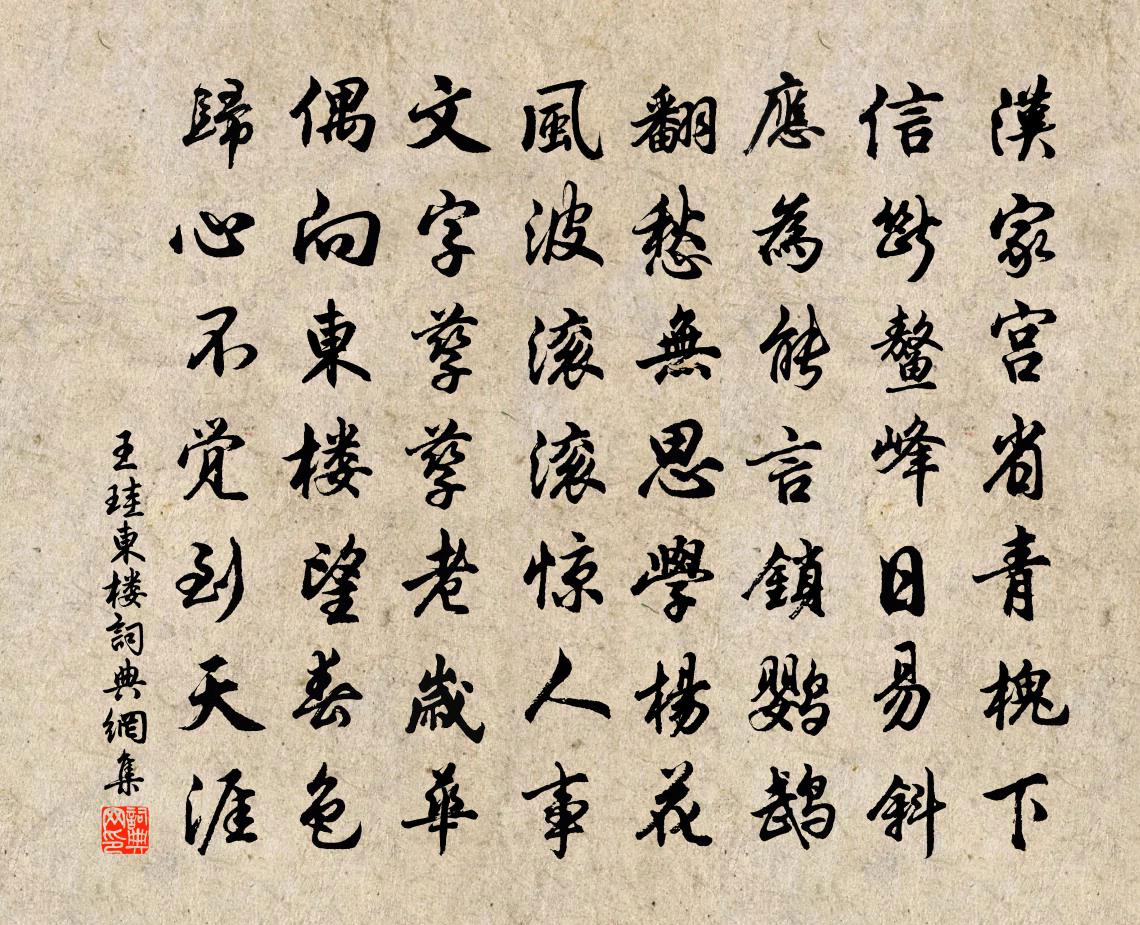 漢家宮省青槐下
信斷鰲峰日易斜
應為能言鎖鸚鵡
翻愁無思學楊花
風波滚滚惊人事
文字孳孳老歲華
偶向東楼望春色
歸心不觉到天涯
王珪東楼詞典網集
詞典网印